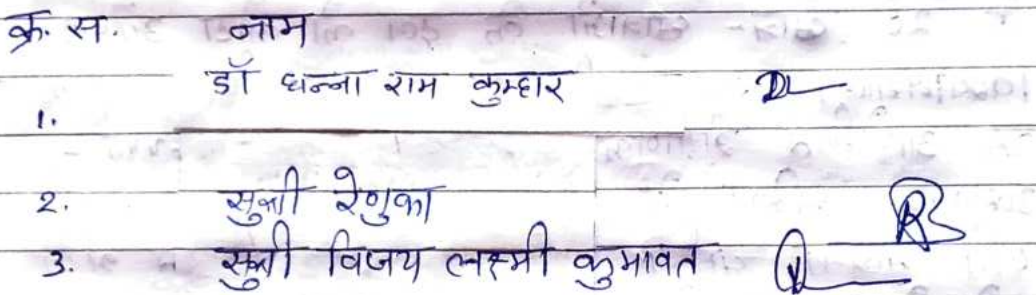 क्र. स. नाम
डॉ धन्ना राम कुम्हार
1.
2. सुश्री रेणुका
3. सुश्री विजय लक्ष्मी कुमावत